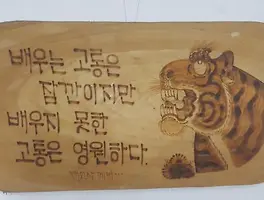 배우는 고통은
잠깐이지만
배우지 못한
고통은 영원하다.